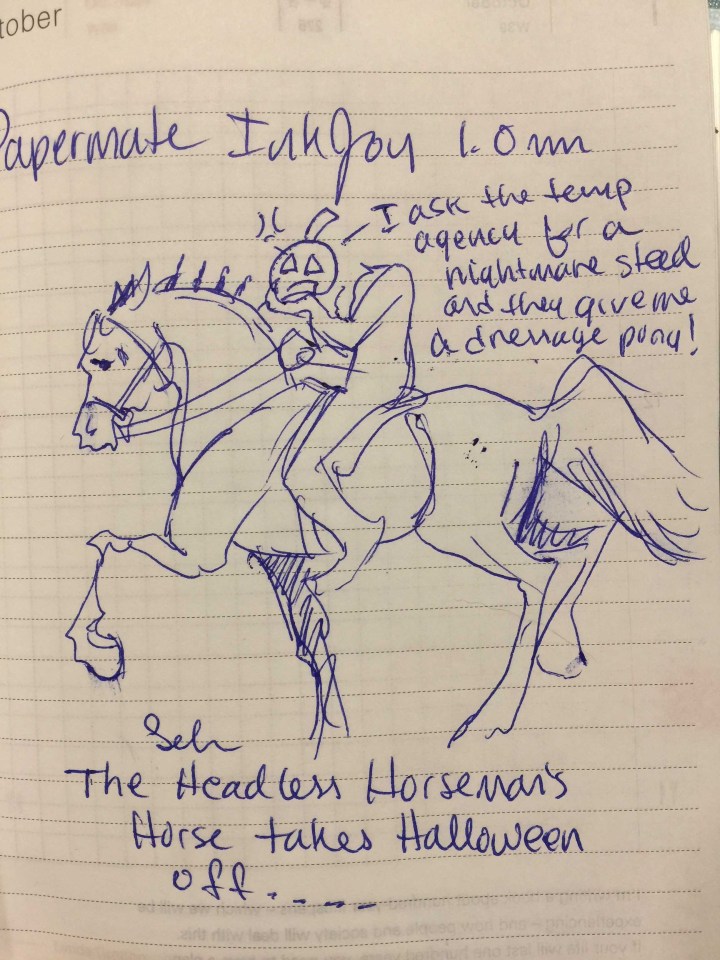 tober
Papermate InkJoy 1.0 mm
I ask the temp
agency for a
nightmare steed
and they give me
a dressage pony!
The Headless Horseman's
Horse takes Halloween
off.....